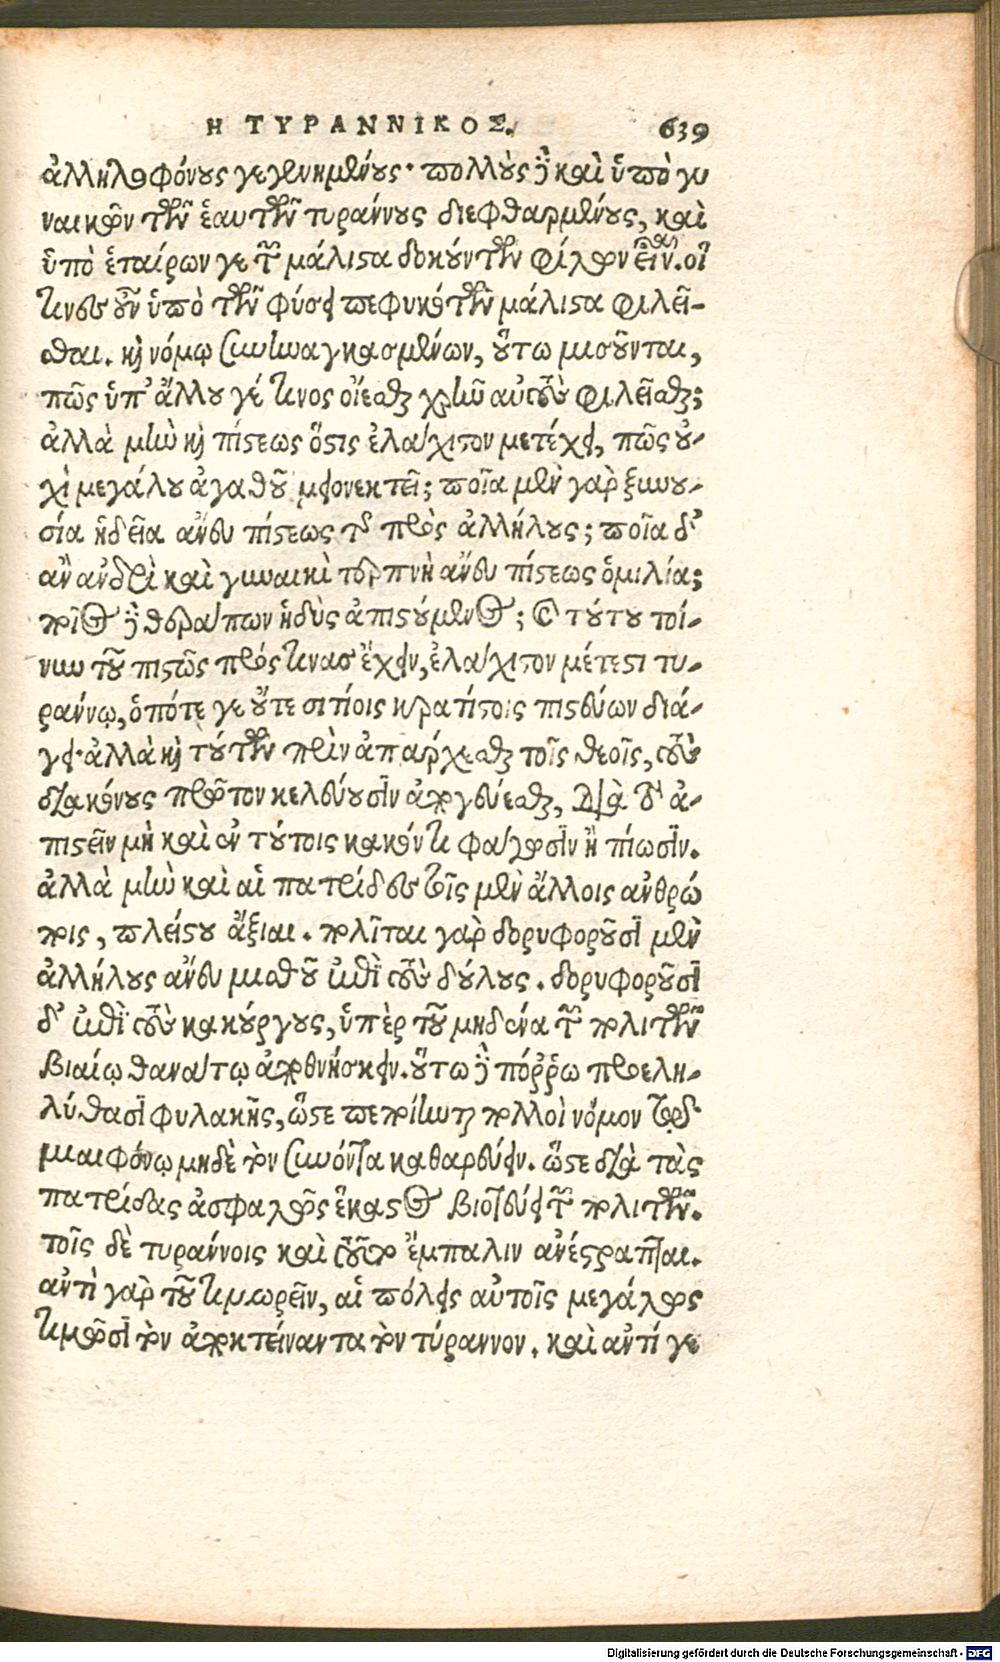 Η ΤΥΡΑΝΝΙΚΟΣ. 639
ἀλληλοφόνους γεγενημένους· πολλοὺς δὲ καὶ ὑπὸ γυ
ναικῶν τῶν ἑαυτῶν τυράννους διεφθαρμένους, καὶ
ὑπὸ ἑταίρων γε τῶν μάλιστα δοκούντων φίλων εἶναι. οἵ
τινες οὖν ὑπὸ τῶν φύσει πεφυκότων μάλιστα φιλεῖ-
σθαι. καὶ νόμῳ συνηναγκασμένων, οὕτω μισοῦνται,
πῶς ὑπ' ἄλλου γέ τινος οἴεσθαι χρὴ αὐτοὺς φιλεῖσθαι;
ἀλλὰ μὴν καὶ πίστεως ὅστις ἐλάχιστον μετέχει, πῶς οὐ-
χὶ μεγάλου ἀγαθοῦ μειονεκτεῖ; ποῖα μὲν γὰρ ξυνου-
σία ἡδεῖα ἄνευ πίστεως τῆς πρὸς ἀλλήλους; ποῖα δ'
ἂν ἀνδρὶ καὶ γυναικὶ τερπνὴ ἄνευ πίστεως ὁμιλία;
ποῖος δὲ θεράπων ἡδὺς ἀπιστούμενος; καὶ τούτου τοί-
νυν τοῦ πιστῶς πρός τινας ἔχειν, ἐλάχιστον μέτεστι τυ-
ράννῳ, ὁπότε γε οὔτε σιτίοις κρατίστοις πιστεύων διά-
γει· ἀλλὰ καὶ τούτων πρὶν ἀπάρχεσθαι τοῖς θεοῖς, τοὺς
διακόνους πρῶτον κελεύουσιν ἀπογεύεσθαι, διὰ τὸ ἀ-
πιστεῖν μὴ καὶ ἐν τούτοις κακόν τι φάγωσιν ἢ πίωσιν.
ἀλλὰ μὴν καὶ αἱ πατρίδες τοῖς μὲν ἄλλοις ἀνθρώ
ποις, πλείστου ἄξιαι. πολῖται γὰρ δορυφοροῦσι μὲν
ἀλλήλους ἄνευ μισθοῦ ἐπὶ τοὺς δούλους. δορυφοροῦσι
δ' ἐπὶ τοὺς κακούργους, ὑπὲρ τοῦ μηδένα τῶν πολιτῶν
βιαίῳ θανάτῳ ἀποθνήσκειν. οὕτω δὲ πόῤῥω προελη-
λύθασι φυλακῆς, ὥστε πεποίηνται πολλοὶ νόμον τῷ
μιαιφόνῳ μηδὲ τὸν συνόντα καθαρεύειν. ὥστε διὰ τὰς
πατρίδας ἀσφαλῶς ἕκαστος βιοτεύει τῶν πολιτῶν.
τοῖς δὲ τυράννοις καὶ τοῦτο ἔμπαλιν ἀνέστραπται.
ἀντὶ γὰρ τοῦ τιμωρεῖν, αἱ πόλεις αὐτοῖς μεγάλως
τιμῶσι τὸν ἀποκτείναντα τὸν τύραννον. καὶ ἀντί γε
Digitalisierung gefördert durch die Deutsche Forschungsgemeinschaft - DFG